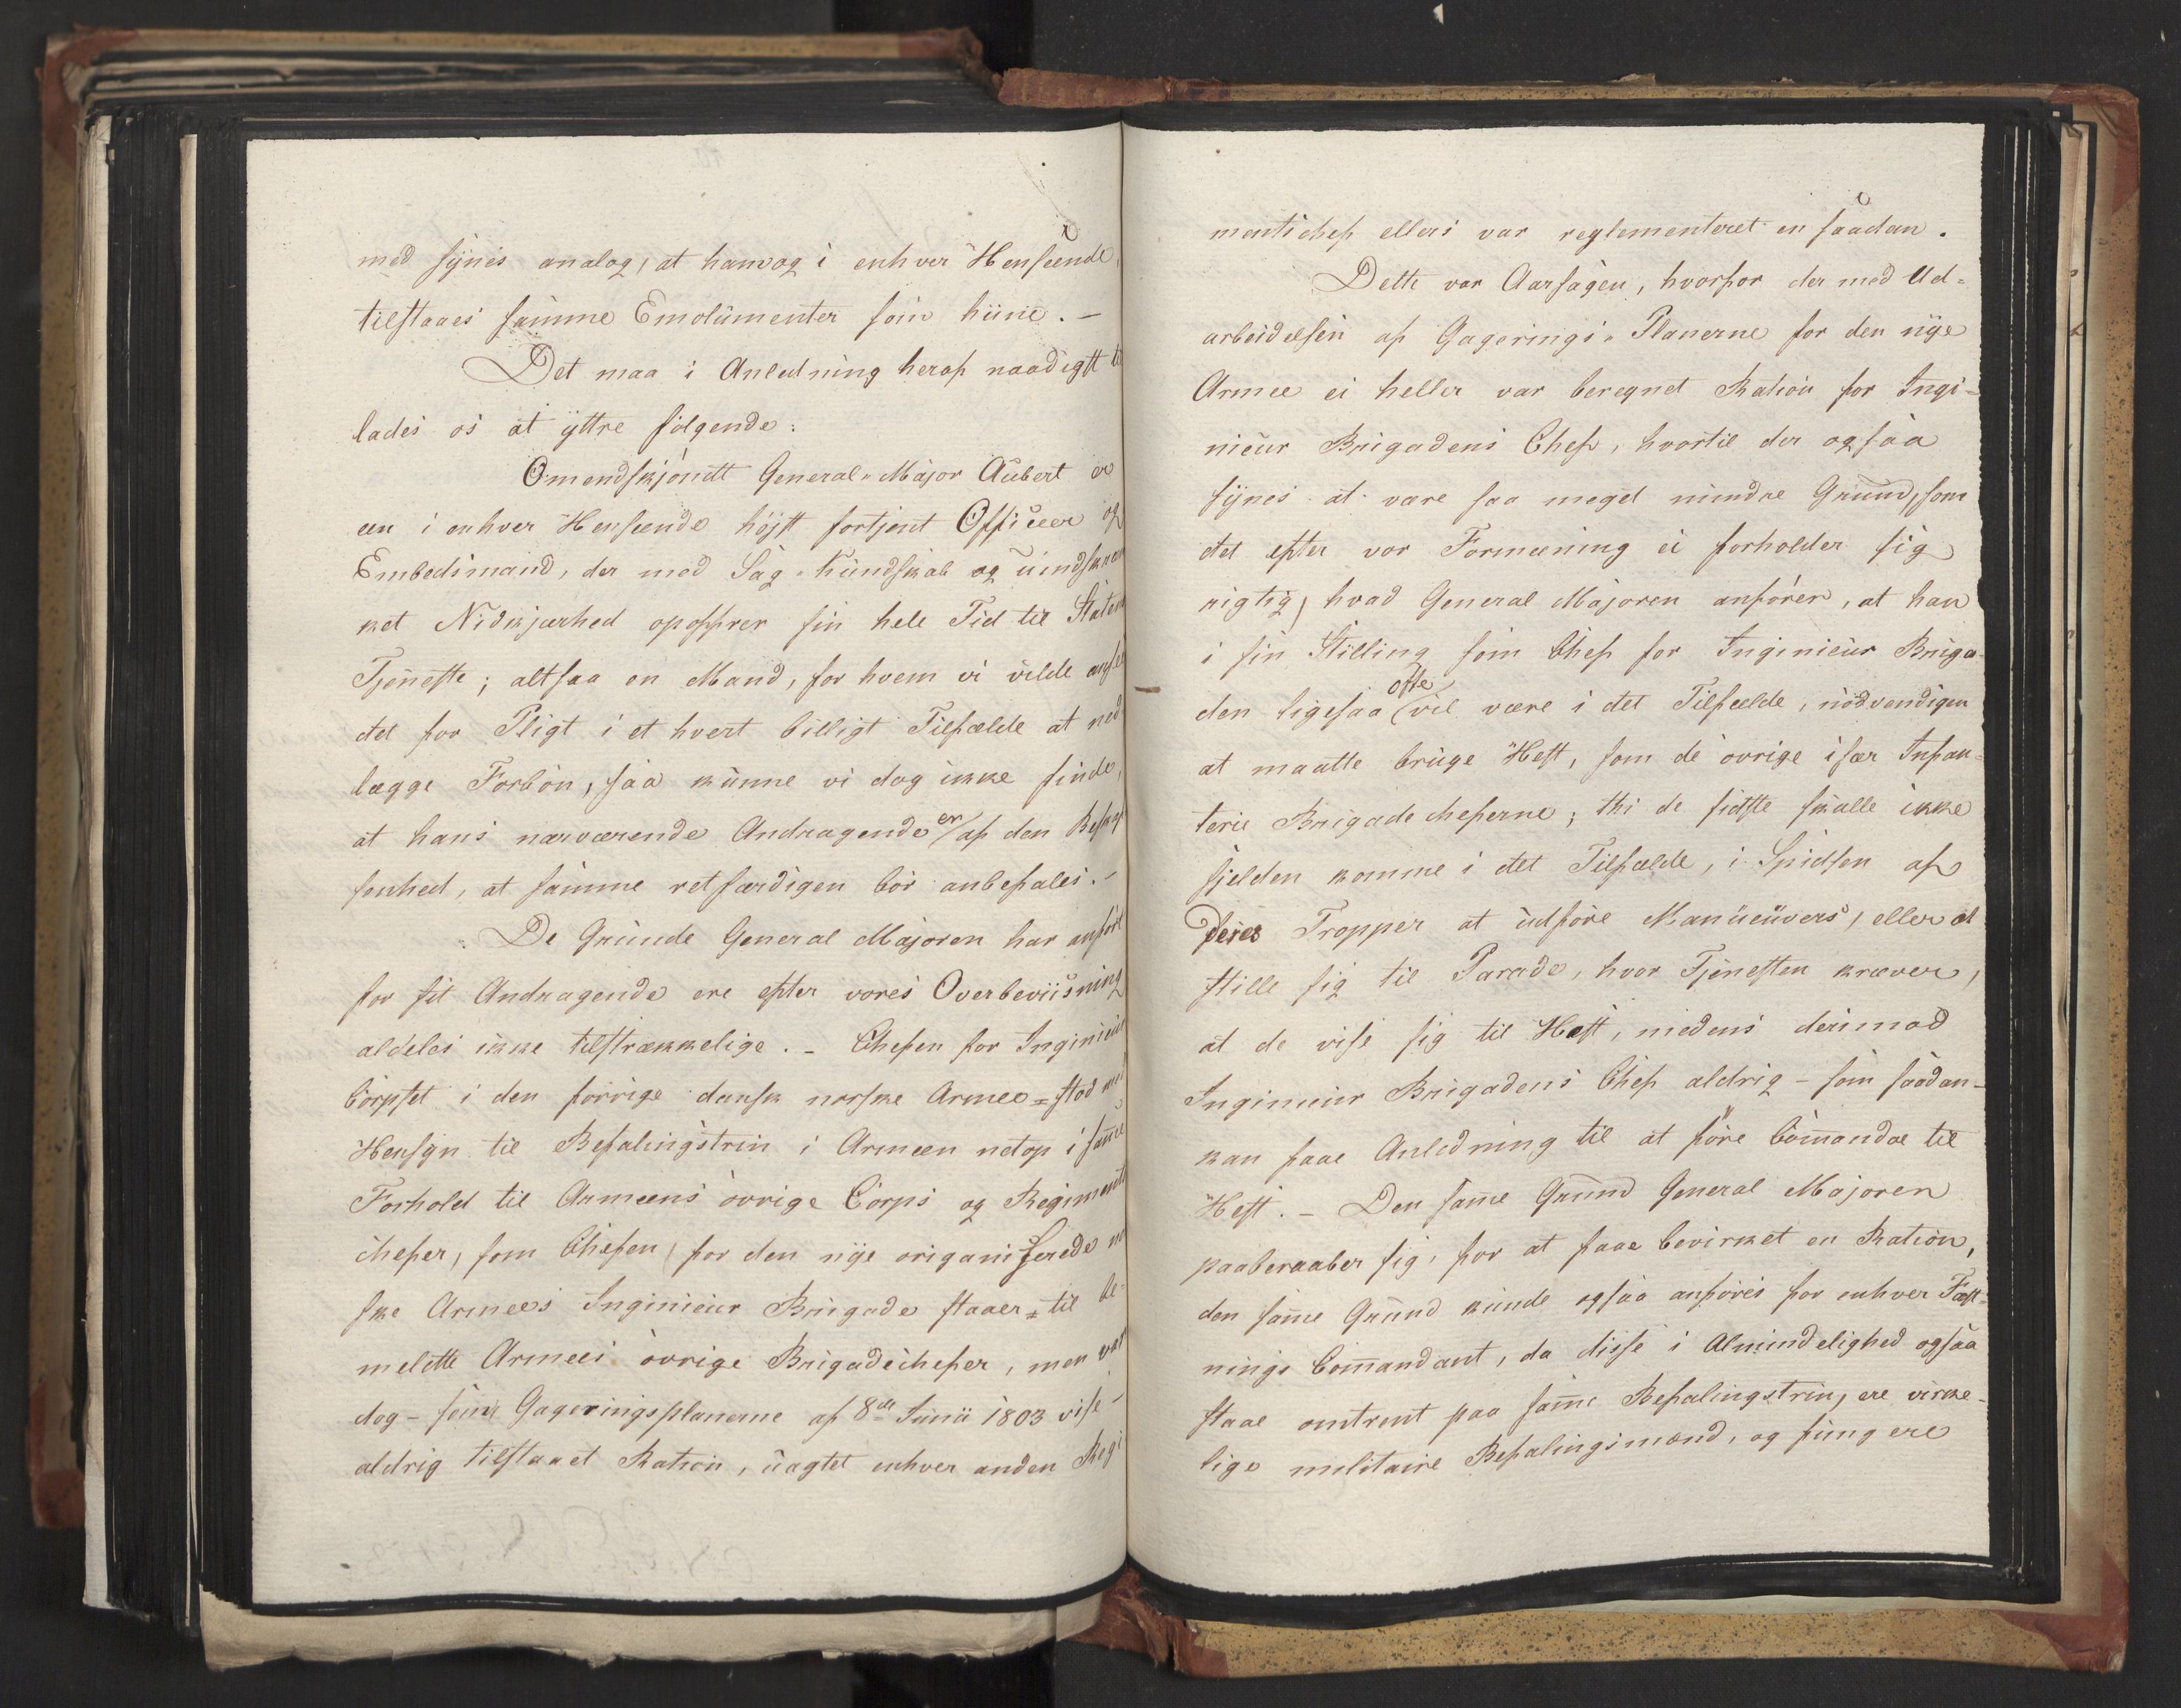 med synes analog, at han og i enhver Henseende
tilstaaes samme Emolumenter som hiine. –
Det maa i Anledning heraf naadigst til
lades os at yttre følgende:
Omendskjöndt General-Major Aubert er
een i enhver Henseende höjst fortjent Officeer og
Embedsmand, der med Sag-Kundskab og uindskræn
ket Nidkjærhed opoffrer sin hele Tid til Statens
Tjeneste; altsaa en Mand, for hvem vi vilde ansee
det for Pligt i et hvert billigt Tilfælde at ned
lægge Forbön, saa kunne vi dog ikke finde,
at hans nærværende Andragende er af den Beskaf
fenhed, at samme retfærdigen bör anbefales. –
De Grunde General Majoren har anfört
for sit Andragende ere efter vores Overbeviisning
aldeles ikke tilstrækkelige. – Chefen for Ingenieur
Corpset i den forrige dansk norske Armee = stod med
Hensyn til Befalingstrin i Armeen netop i samme
Forhold til Armeens övrige Corps og Regiments
chefer, som Chefen for den nye origaniserede nor
ske Armees Ingenieur Brigade staaer = til be-
meldte Armees övrige Brigadechefer, men var
dog – som Gageringsplanerne af 8de Junii 1803 vise –
aldrig tilstaaet Ration, uagtet enhver anden Regi
mentschef ellers var reglementeret en saadan.
Dette var Aarsagen, hvorfor der med Ud=
arbeidelsen af Gagerings-Planerne for den nye
Armee ei heller var beregnet Ration for Ingi=
nieur Brigadens Chef, hvortil der ogsaa
synes at være saa meget mindre Grund, som
det efter vor Formeening ei forholder sig
rigtig, hvad General Majoren anförer, at han
i sin Stilling som Chef for Inginieur Briga-
den ligesaa ofte vil være i det Tilfælde, nödvendigen
at maatte bruge Hest, som de övrige især Infan=
terie Brigadecheferne; thi de sidste skulle ikke
sjelden komme i det Tilfælde, i Spidsen af
deres Tropper at udföre Manueuvers, eller at
stille sig til Parade, hvor Tjenesten kræver,
at de vise sig til Hest, medens derimod
Inginieur Brigadens Chef aldrig – som saadan –
kan faae Anledning til at före Com̄ando til
Hest. – Den sam̄e Grund General Majoren
paaberaaber sig, for at faae bevirket en Ration,
den sam̄e Grund kunde ogsaa anföres for enhver Fæst=
nings Com̄andant, da disse i Almindelighed ogsaa
staae omtrent paa sam̄e Befalingstrin, ere virke-
lige militaire Befalingsmænd, og fungere